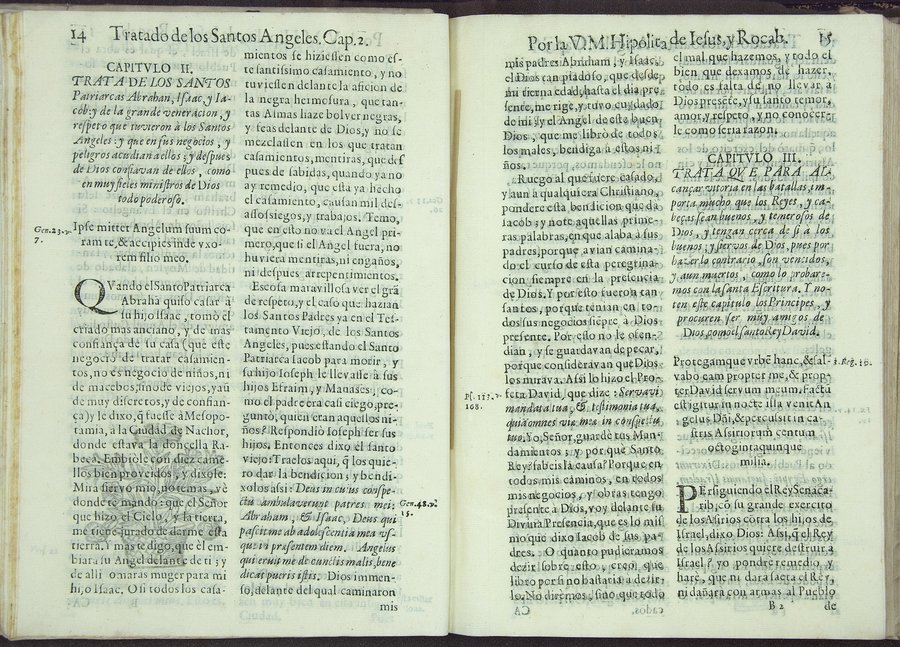 14 Tratado de los Santos Angeles. Cap. 2.
CAPITVLO II.
TRATA DE LOS SANTOS
Patriarcas Abrahan, Isaac, y Ia-
cob: y de la grande veneracion, y
respeto que tuvieron à los Santos
Angeles: y que en sus negocios, y
peligros acudian a ellos; y despues
de Dios confiavan de ellos, como
en muy fieles ministros de Dios
todo poderoso.
Gen. 23. v.
7.
Ipse mittet Angelum suum co-
ram te, & accipies inde vxo-
rem filio meo.
QVando el Santo Patriarca
Abrahã quiso casar à
su hijo Isaac, tomò el
criado mas anciano, y de mas
confiança de su casa (que este
negocio de tratar casamien-
tos, no es negocio de niños, ni
de macebos, sino de viejos, y aũ
de muy discretos, y de confian-
ça) y le dixo, q̃ fuesse à Mesopo-
tamia, a la Ciudad de Nachor,
donde estava la doncella Ra-
beca. Embiòle con diez came-
llos bien proveidos, y dixole:
Mira siervo mio, no temas, vè
donde te mando: que el Señor
que hizo el Cielo, y la tierra,
me tiene jurado de darme esta
tierra. Y mas te digo, que èl em-
biara su Angel delante de ti; y
de alli omaras muger para mi
hijo Isaac. O si todos los casa-
mientos se hiziessen como es-
te santissimo casamiento, y no
tuviessen delante la aficion de
la negra hermosura, que tan-
tas Almas haze bolver negras,
y feas delante de Dios, y no se
mezclassen en los que tratan
casamientos, mentiras, que des
pues de sabidas, quando ya no
ay remedio, que esta ya hecho
el casamiento, causan mil des-
assossiegos, y trabajos. Temo,
que en esto no va el Angel pri-
mero, que si el Angel fuera, no
huviera mentiras, ni engaños,
ni despues arrepentimientos.
Es cosa maravillosa ver el grã
de respeto, y el caso que hazian
los Santos Padres ya en el Tes-
tamento Viejo, de los Santos
Angeles, pues estando el Santo
Patriarca Iacob para morir, y
su hijo Ioseph le llevasse à sus
hijos Efraim, y Manases; co-
mo el padre era casi ciego, pre-
guntò, quien eran aquellos ni-
ños? Respondiò Ioseph ser sus
hijos. Entonces dixo el santo
viejo: Traelos aqui, q̃ los quie-
ro dar la bendicion; y bendi-
xolos assi: Deus in cuius conspe-
ctu ambulaverunt patres mei;
Abraham, & Isaac, Deus qui
pascit me ab adolescentia mea vs-
que in præsentem diem. Angelus
qui eruit me de cunctis malis, bene
dicat pueris istis. Dios immen-
so, delante del qual caminaron
mis
Gen. 48. v.
15.
Por la V. M. Hipolita, de Iesus, y Rocab. 15
mis padres Abraham, y Isaac,
el Dios tan piadoso, que desde
mi tierna edad, hasta el dia pre-
sente, me rige, y tuvo cuydado
de mi: y el Angel de este buen
Dios, que me libro de todos
los males, bendiga a estos ni-
ños.
Ruego al que fuere casado,
y aun à qualquiera Christiano,
pondere esta bendicion que da
Iacob; y note aquellas prime-
ras palabras, en que alaba à sus
padres, porque avian camina-
do el curso de esta peregrina-
cion siempre en la presencia
de Dios. Y por esto fueron tan
santos, porque tenian en to-
dos sus negocios siẽpre à Dios
presente. Por esso no le ofen-
dian, y se guardavan de pecar,
porque consideravan que Dios
los mirava. Assi lo hizo el Pro-
feta David, que dize: Servavi
mandata tua, & testimonia tua,
quia omnes viæ meæ in conspectu
tuo. Yo, Señor, guardè tus Man-
damientos; y por què Santo
Rey? sabeis la causa? Porque en
todos mis caminos, en todos
mis negocios, y obras tengo
presente à Dios, voy delante su
Divina Presencia, que es lo mis
mo que dixo Iacob de sus pa-
dres. O quanto pudieramos
dezir sobre esto, creo, que
libro por si no bastaria a dezir-
lo. No diremos, sino que todo
CA
Ps. 118. v.
168.
el mal que hazemos, y todo el
bien que dexamos de hazer,
todo es falta de no llevar à
Dios presẽte, y su santo temor,
amor, y respeto, y no conocer-
le como seria razon.
CAPITVLO III.
TRATA QVE PARA AL-
cançar vitoria en las batallas, im-
porta mucho que los Reyes, y ca-
beças sean buenos, y temerosos de
Dios, y tengan cerca de si à los
buenos, y siervos de Dios, pues por
hazer lo contrario, son vencidos,
y aun muertos, como lo probare-
mos con la santa Escritura. Y no-
ten este capitulo los Principes, y
procuren ser muy amigos de
Dios, como el santo Rey David.
Protegamque vrbẽ hanc, & sal-
vabo eam propter me, & prop-
ter David servum meum. Factũ
est igitur in nocte illa venit An
gelus Dñi, & percussit in ca-
stris Assiriorum centum
octogintaquinque
milia.
4. Reg. 19.
PErsiguiendo el Rey Senaca-
rib, cõ su grande exercito
de los Asirios contra los hijos de
Israel, dixo Dios: Assi, q̃ el Rey
de los Assirios quiere destruir a
Israel? yo pondrè remedio, y
harè, que ni dara saeta el Rey,
ni dañarà con armas al Pueblo
B 2 de